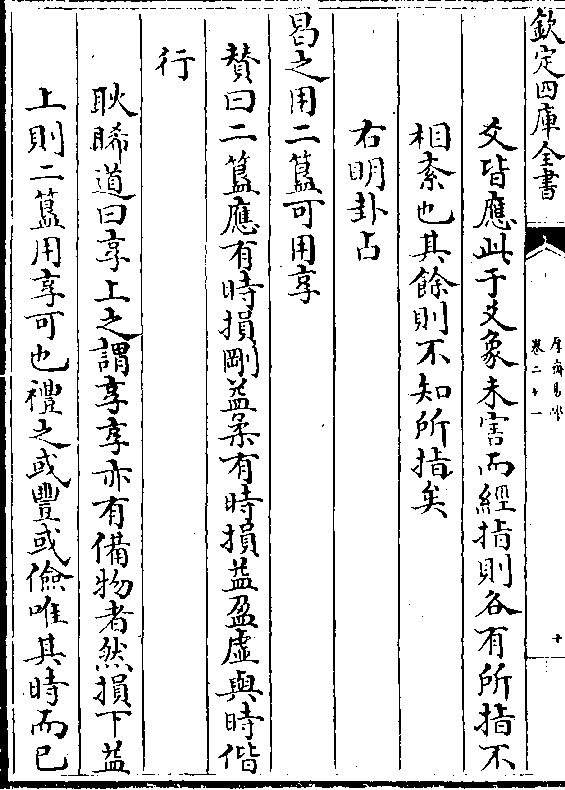 欽定四庫全書
厚齋易學
卷二十一
十
爻皆應此于爻象未害而經指則各有所指不
相紊也其餘則不知所指矣
右明卦占
曷之用二簋可用享
贊曰二簋應有時損剛益柔有時損益盈虛與時偕
行
耿睎道曰享上之謂享享亦有備物者然損下益
上則二簋用享可也禮之或豐或儉唯其時而已